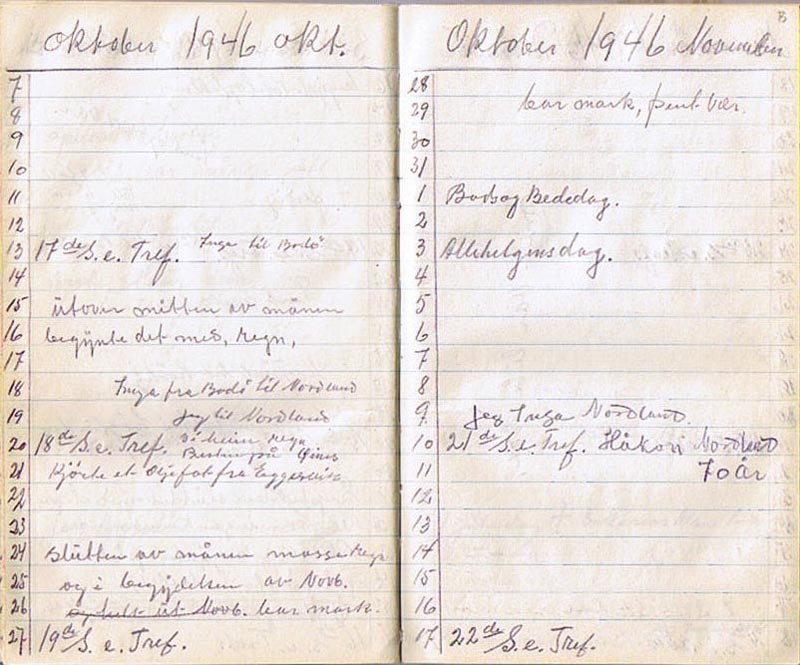 Oktober 1946 okt.
7
8
9
10
11
12
13 17de S. e. Tref. Inga til Bodö
14
15 utover mitten av månen
16 begynte det med, regn,
17
18 Inga fra Bodö til Nordland
19 jeg til Nordland
20 18de S. e. Tref. heim regn
21 Kjörte et Oljefat fra
22
23
24 slutten av månen masse regn
25 og i begyndelsen av Novb.
26 og helt ut Novb. bar mark.
27 19de S. e. Tref.
Oktober 1946 November
28
29 bar mark, pent vær.
30
31
1 Bods og Bededag.
2
3 Allehelgensdag.
4
5
6
7
8
9 jeg Inga Nordland.
10 21de S. e. Tref. Håkon Nordland
11 70 år
12
13
14
15
16
17 22de S. e. Tref.